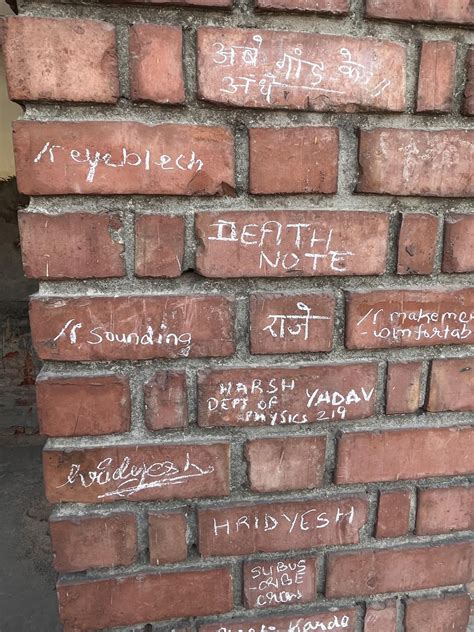 अबे गांड के
अंधे
/r eyeblech
DEATH
NOTE
/r sounding
राजे
/r makeme
HARSH YADAV
DEPT OF
PHYSICS 219
Hridyesh
HRIDYESH
SUBUS
-CRIBE